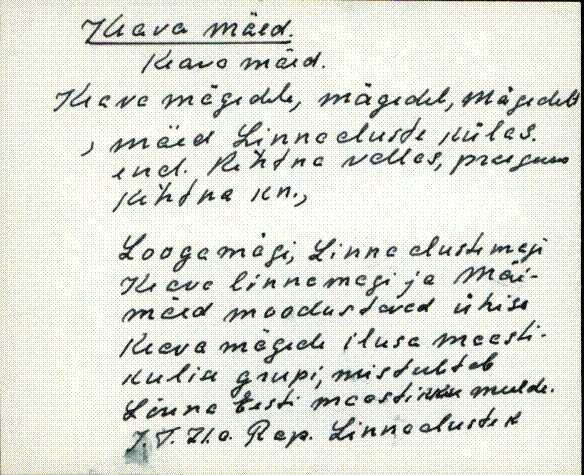 Keava mäed.
Keava mäed.
Keava mägedele, mägedel, mägedelt
, mäed Linnaaluste külas.
end. Kehtna vallas, praegune
Kehtna kn.,
Loogamägi, Linnaalustemägi
Keava linnamägi ja
mäed moodustavad ühise
Keava mägede ilusa maasti-
kulise grupi, mis tuletab
Lõuna Eesti maastikku meelde.
Rap. Linnaaluste k